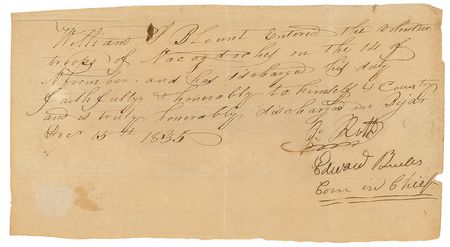 William W Blount Entered the volunteer
troops of Nacogdoches on the 14 of
November and has discharged his duty
faithfully & honorably to himself & County
and is truly honorably discharged in Bejar
Decr 15th 1835
Edward Burles
Com in Chief